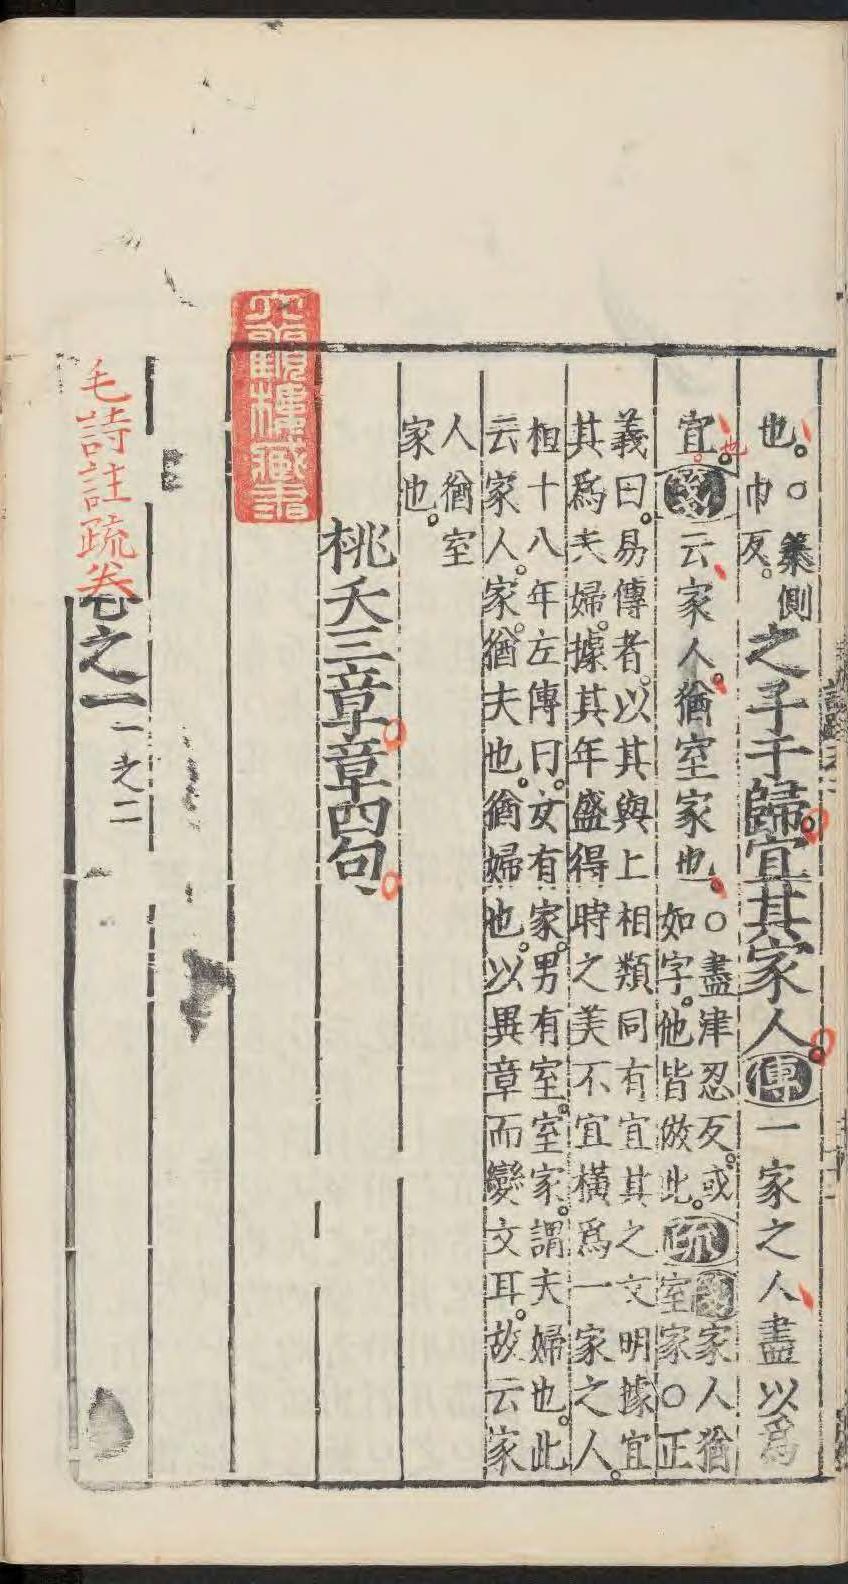 也。○蓁側巾反。之子于歸。宜其家人。傳一家之人盡以爲
宜。也箋云家人。猶室家也。○盡津忍反。或如字。他皆放此。疏箋家人猶室家○正
義曰。易傳者。以其與上相類同有宜其之文明據宜
其爲夫婦。據其年盛得時之美不宜橫爲一家之人。
桓十八年左傳曰。女有家。男有室。室家。謂夫婦也。此
云家人。家。猶夫也。猶婦也。以異章而變文耳。故云家
人猶室
家也。
桃夭三章章四句、
毛詩註疏卷之一 一之二